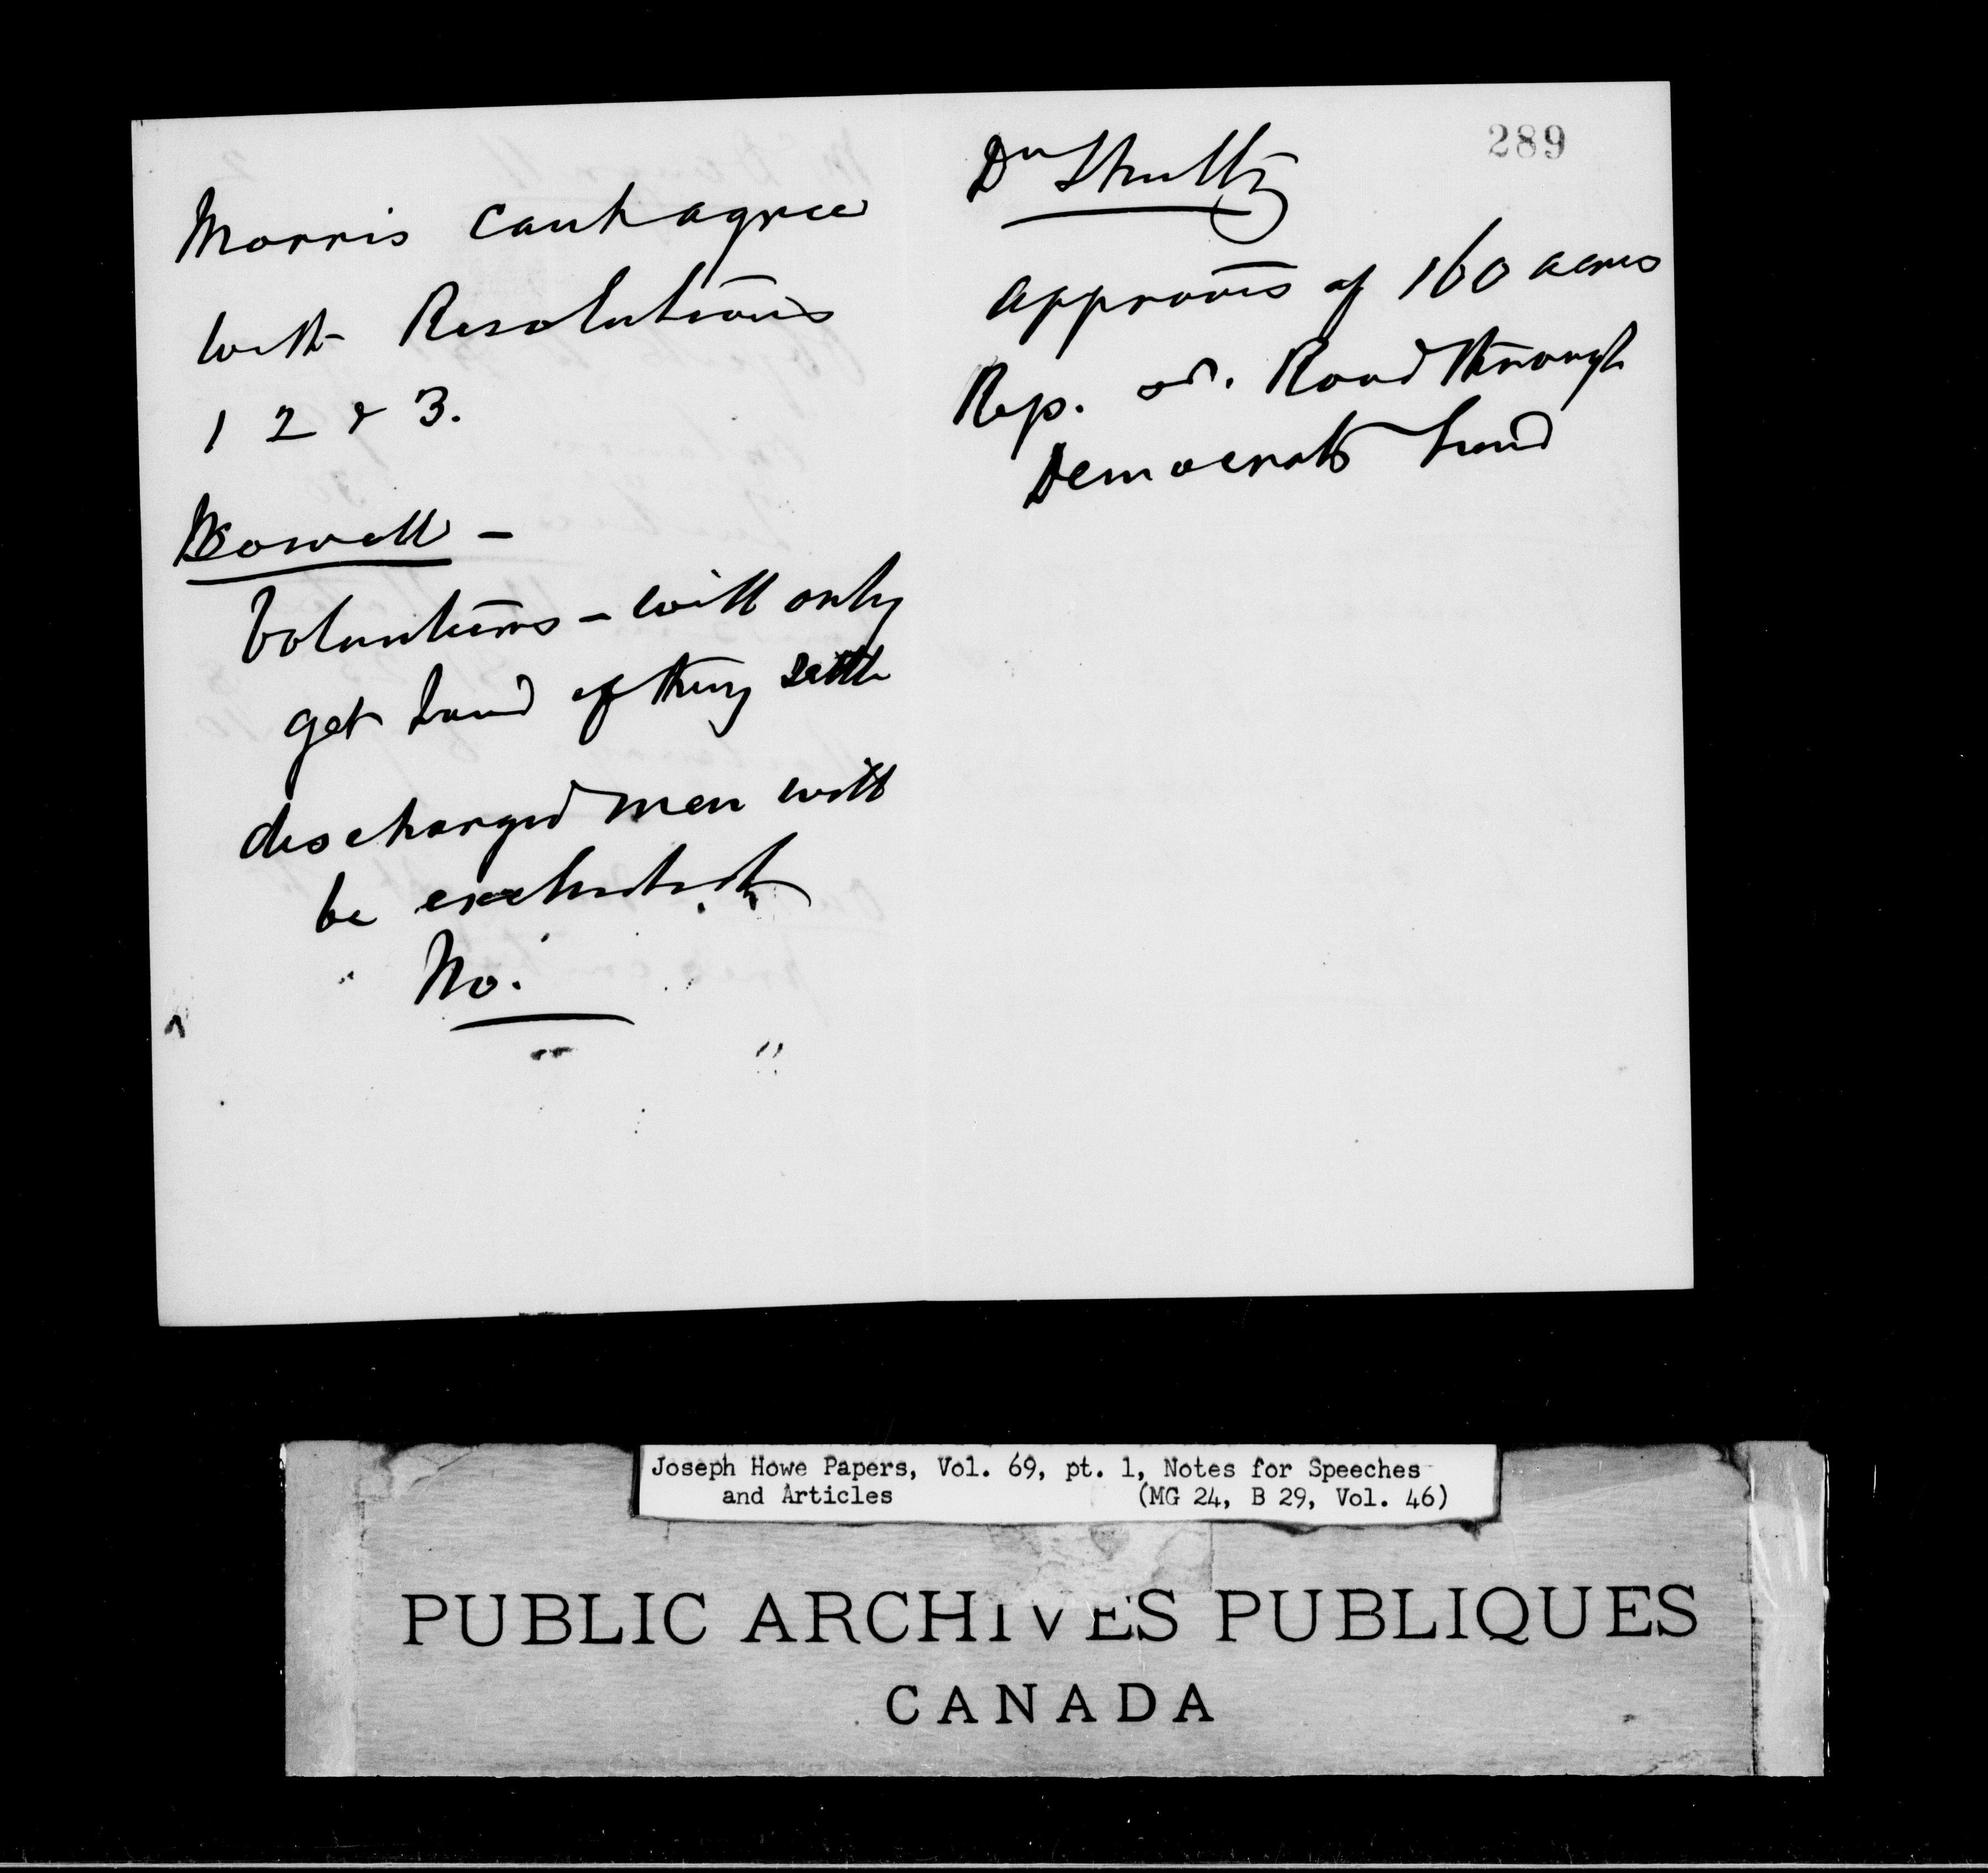 Morris cant agree
with Resolutions
1 2 & 3.
Bowell -
Volunteers - will only
get land if they settle
discharged men will
be excluded
No.
289
Dr Shultz
approves of 160 acres
Rep. Road through
Democrats land
Joseph Howe Papers, Vol. 69, pt. 1, Notes for Speeches
and Articles (MG 24, B 29, Vol. 46)
PUBLIC ARCHIVES PUBLIQUES
CANADA